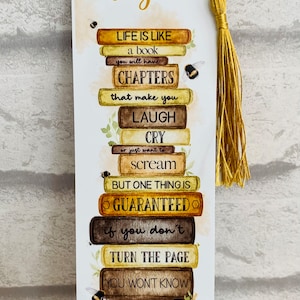 LIFE IS LIKE
a book
you will have
CHAPTERS
that make you
LAUGH
CRY
or just want to
scream
BUT ONE THING IS
GUARANTEED
if you don't
TURN THE PAGE
YOU WON'T KNOW